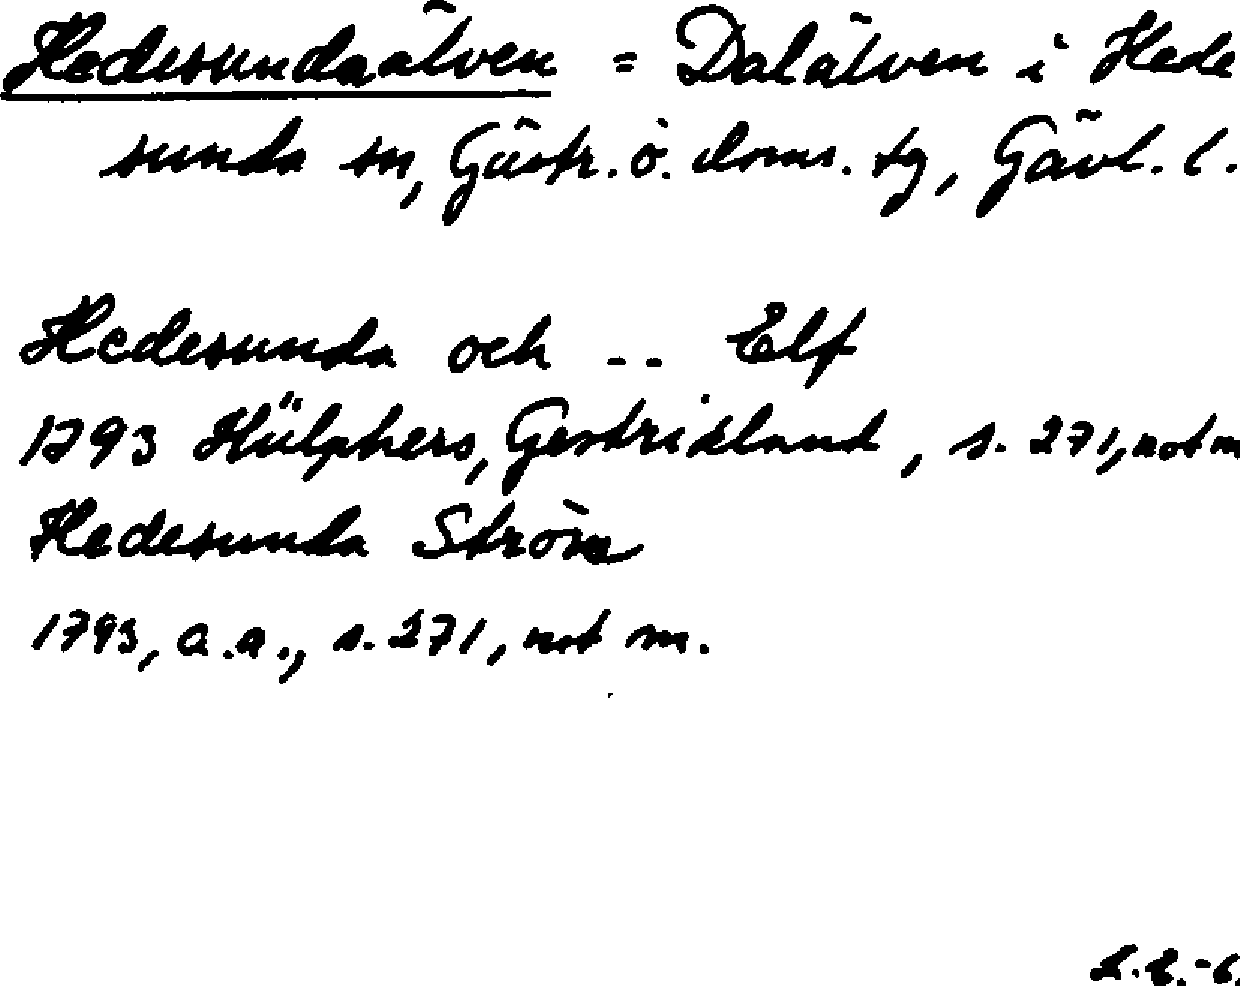 Hedesundaälven = Dalälven i Hede
sunda sn, Gästr. ö. doms. tg, Gävl. l.
Hedesunda och -- Elf
1793 Hülphers, Gestrikland, s. 271, not m
Hedesunda Ström
1793, a.a., s. 271, not m.